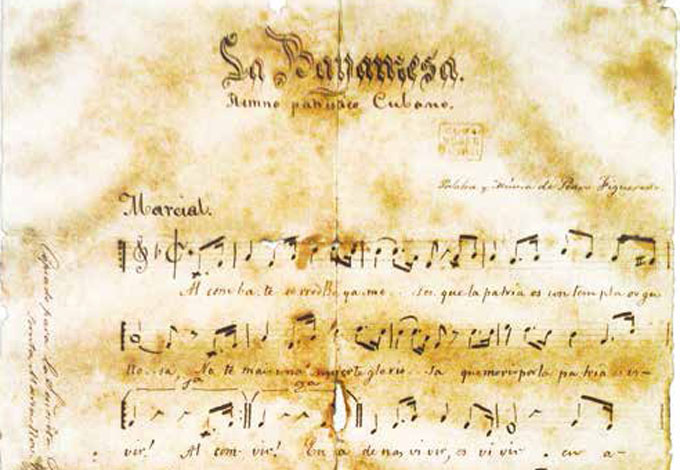 La Bayamesa.
Himno patriotico Cubano.
Palabra y Música de Pedro Figueredo
Marcial.
Al comba. te corred Ba ya me .. ses que la patria os contempla orgu
llo - sa, No te mais una muerte glorio .. sa que morir por la pa tria es vi-
1a 2a
vir! Al com - vir! En ca de nas vi vir, es vi vir - en a -
Copiado para la Señorita